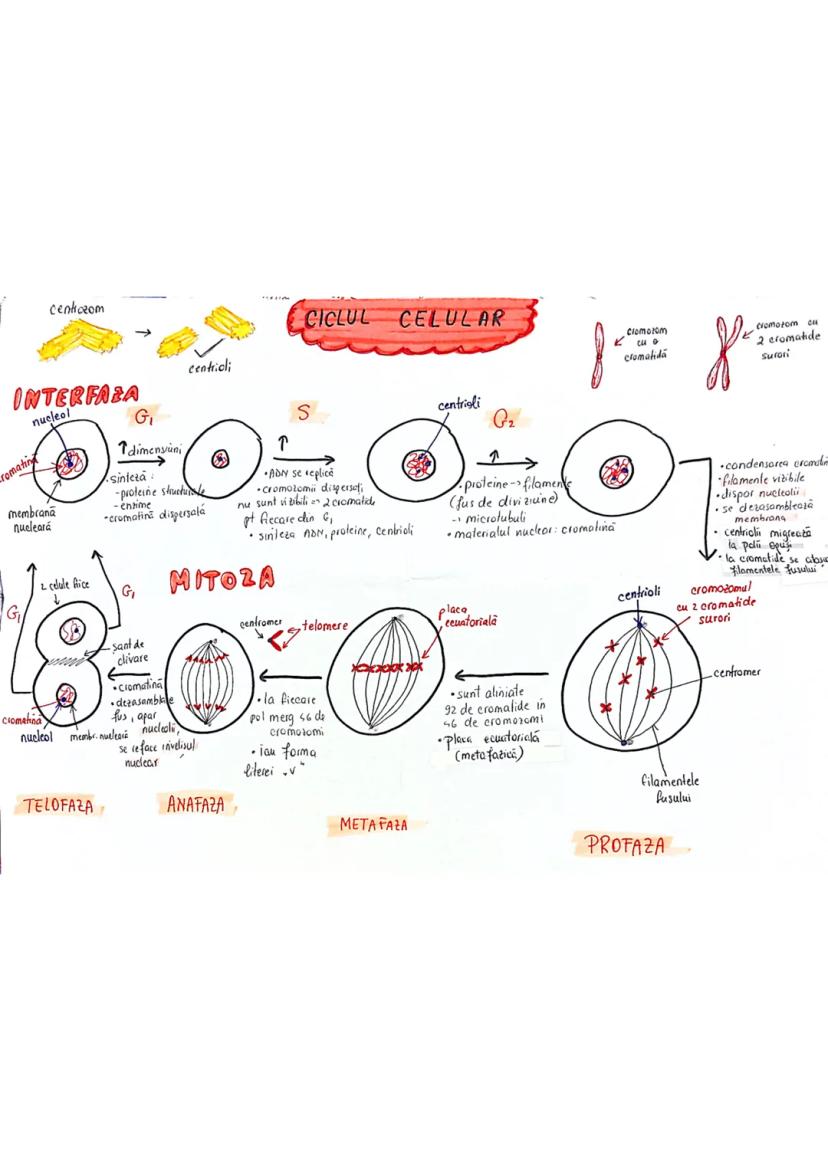 CICLUL CELULAR
centrozom
centrioli
cromozom
cu o
cromatidă
cromozom cu
2 cromatide
surori
INTERFAZA
nucleol
cromatină
membrană
nucleară
G₁
↑ dimensiuni
• sinteză :
- proteine structurale
- enzime
- cromatină dispersală
S
↑
• ADN se replică
• cromozomii dispersați
nu sunt vizibili => 2 cromatide
pt fiecare din G₁
• sinteza ADN, proteine, centrioli
centrioli
G₂
↑
• proteine -> filamente
(fus de diviziune)
-> microtubuli
• materialul nuclear : cromatină
• condensarea
• filamente vizibile
• dispar nucleolii
• se dezasamblează
membrana
• centrolii migrează
la polii opuși
• la cromatide se
filamentele fusului
MITOZA
2 celule fiice
G₁
G₁
șanț de
clivare
cromatină
nucleol
membr. nucleară
• cromatină
• dezasamblate
fus, apar
nucleolii,
se reface învelișul
nuclear
TELOFAZA
centromer
telomere
• la fiecare
pol merg 46 de
cromozomi
• iau forma
literei „V"
ANAFAZA
placa
ecuatorială
• sunt aliniate
92 de cromatide în
46 de cromozomi
• placa ecuatorială
(metafazică)
METAFAZA
centrioli
cromozomul
cu 2 cromatide
surori
centromer
filamentele
fusului
PROFAZA